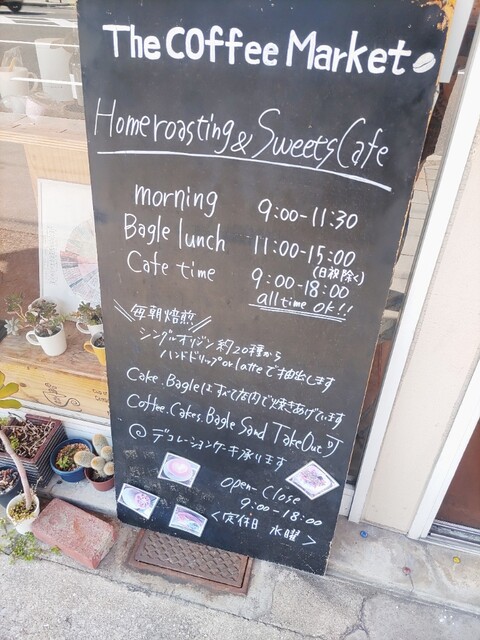 The Coffee Market
Homeroasting & Sweets Cafe
morning 9:00-11:30
Bagle lunch 11:00-15:00
(日祝除く)
Cafe time 9:00-18:00
all time OK!!
毎朝焙煎
シングルオリジン約20種から
ハンドドリップor latteで抽出します
Cake.Bagleはすべて店内で焼きあげています
Coffee.Cakes.Bagle Sand TakeOut可
◎デコレーションケーキ承ります
open-close
9:00-18:00
<定休日 水曜>